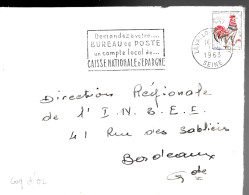 Demandez à votre...
BUREAU DE POSTE
un compte local de...
CAISSE NATIONALE D'EPARGNE
1963
SEINE
Direction Régionale
de l'I.N.S.E.E.
41 Rue des Sablières
Bordeaux
Gde
Coq d'Oz